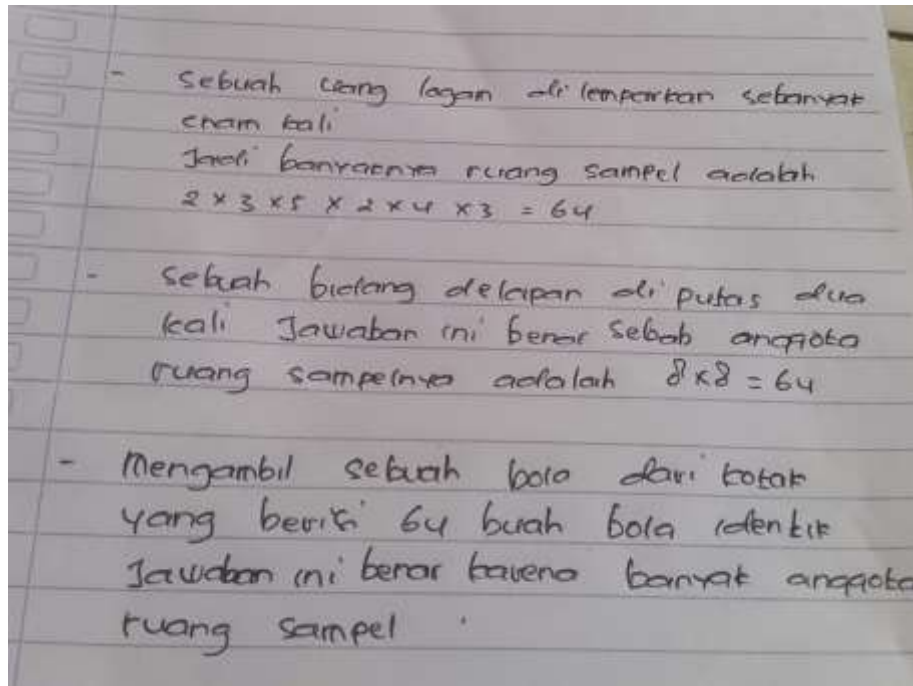 - Sebuah uang logam di lemparkan sebanyak
enam kali
Jadi banyaknya ruang sampel adalah
2 x 3 x 5 x 2 x 4 x 3 = 64
- Sebuah bidang delapan di putar dua
kali Jawaban ini benar Sebab anggota
ruang sampelnya adalah 8x8 = 64
- Mengambil sebuah bola dari kotak
yang berisi 64 buah bola identik
Jawaban ini benar karena banyak anggota
ruang sampel .